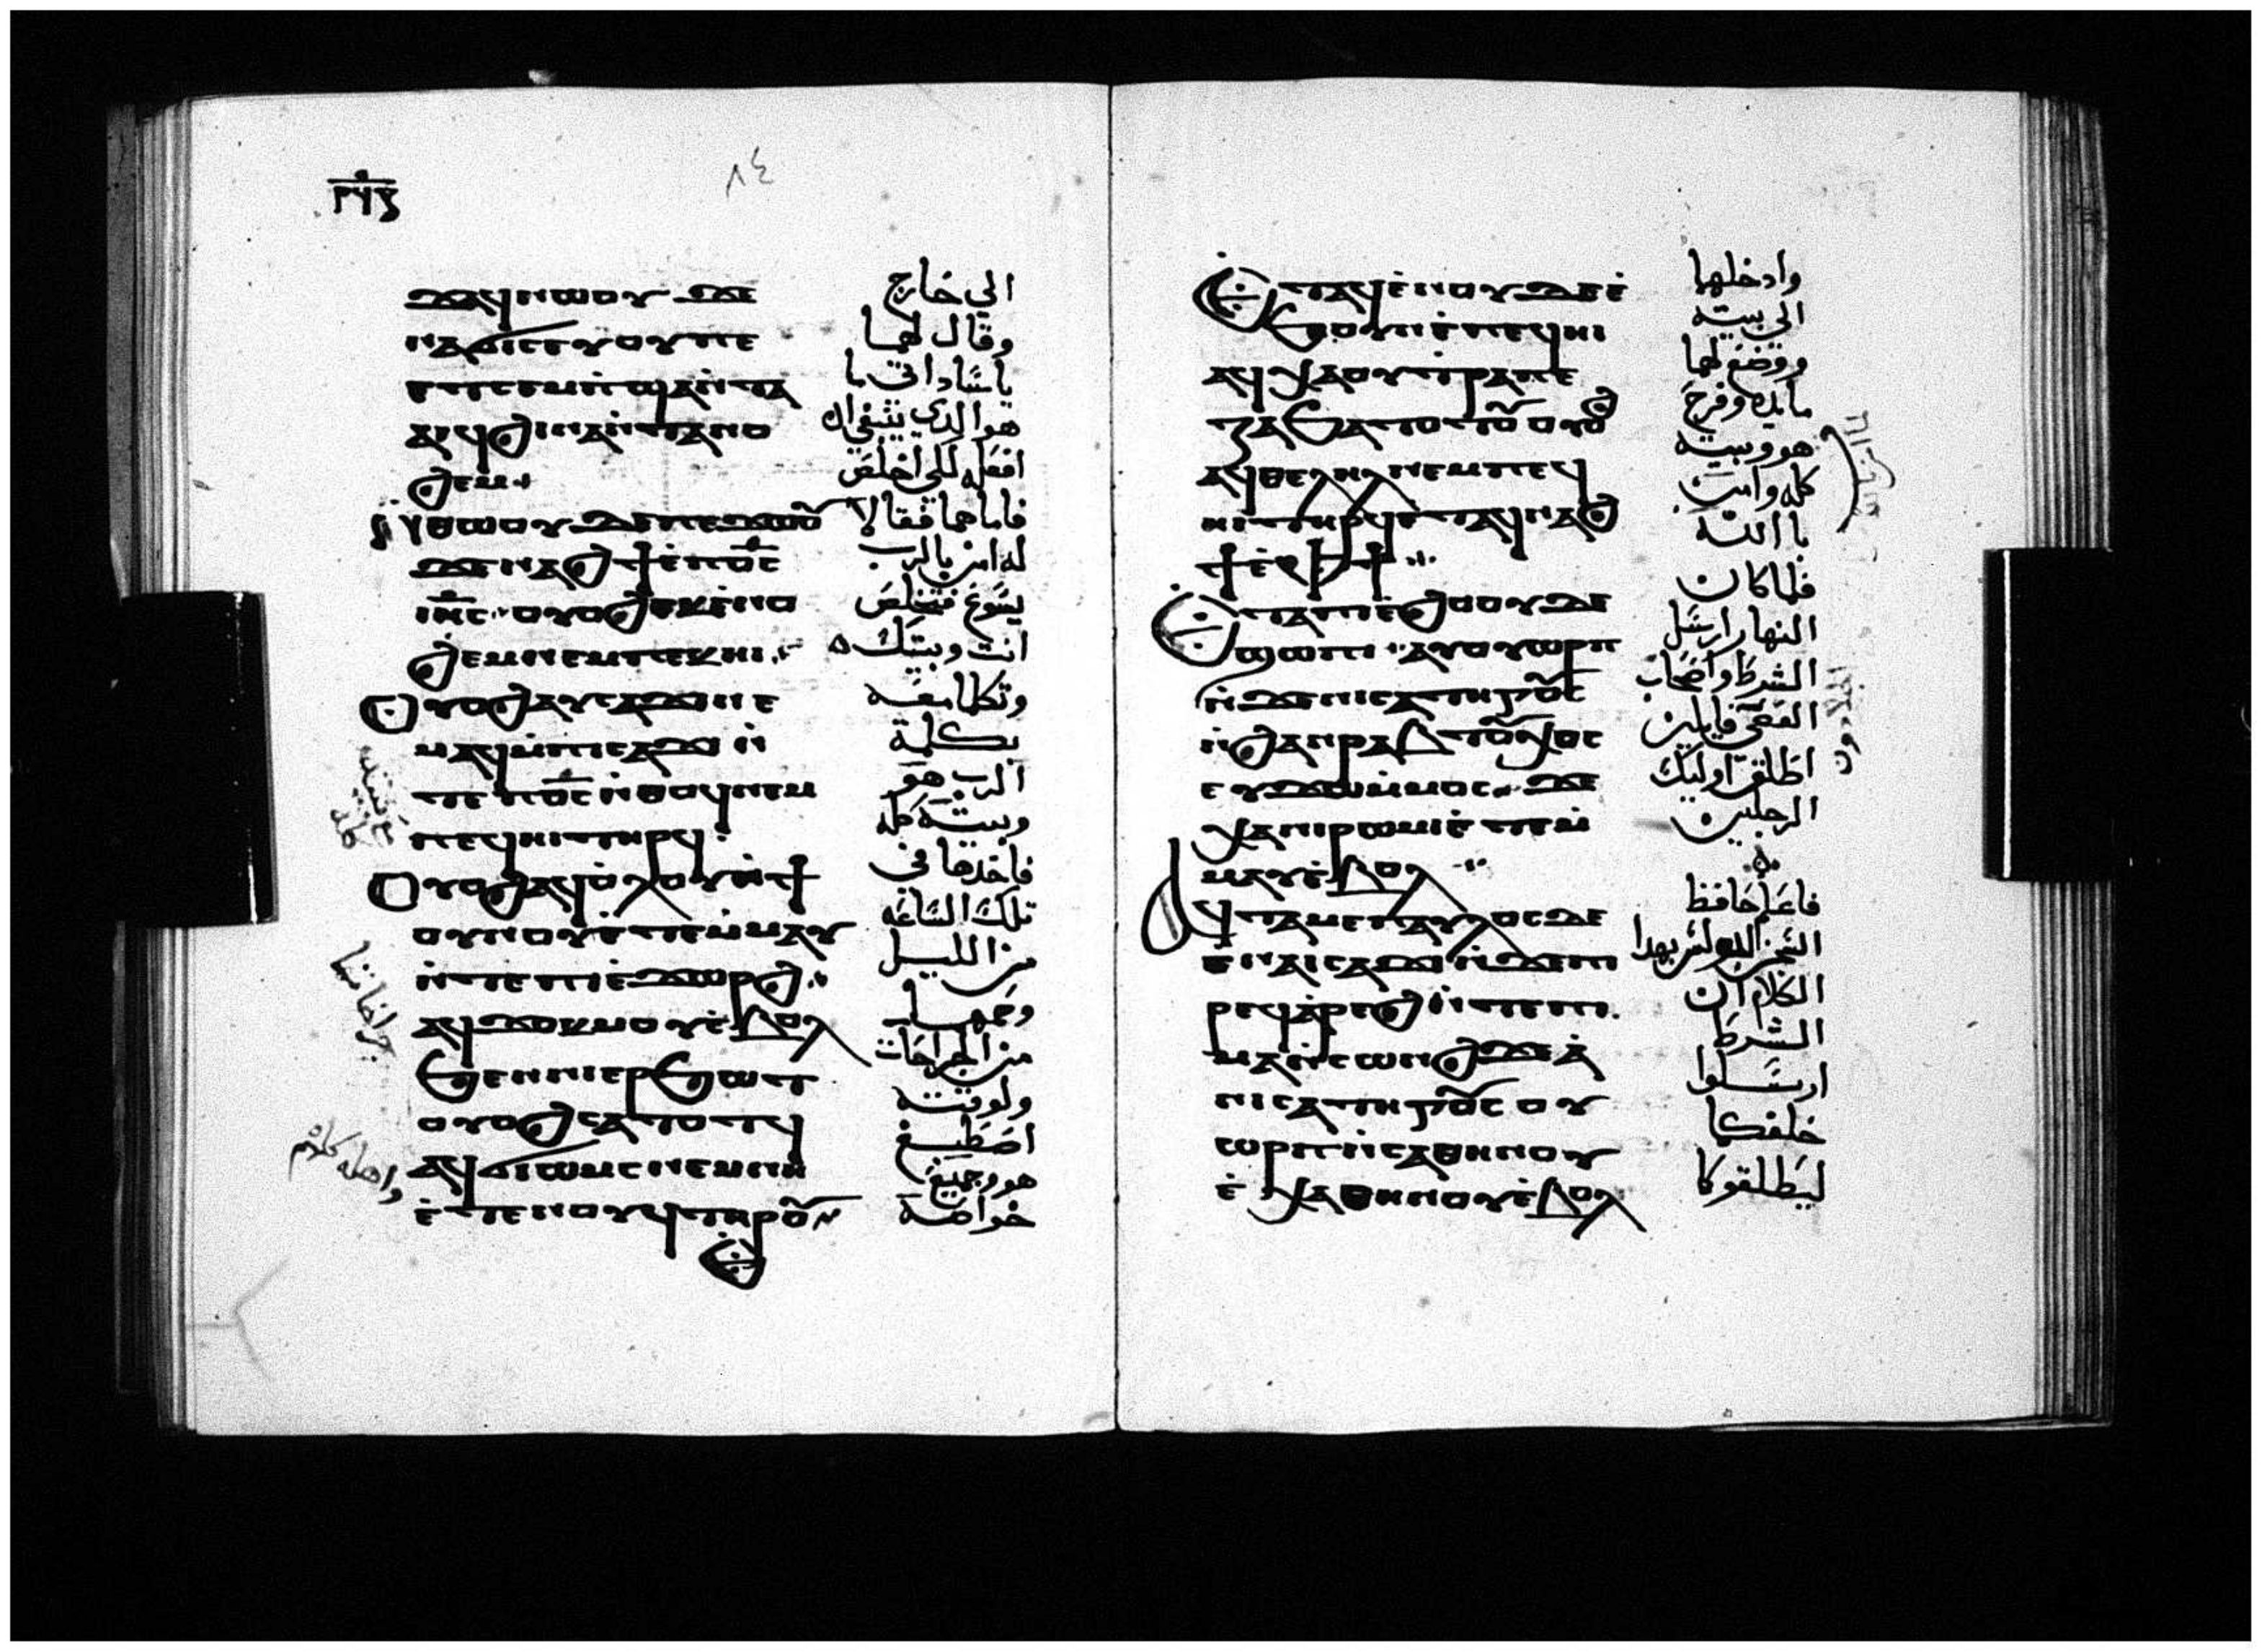 ٨٤
ϫⲁϥⲛⲱⲟⲩ ϫⲉ
ⲛⲁϭⲓⲥⲉⲩ ⲟⲩ ⲡⲉ
ⲉⲧⲥⲉⲙⲡ̀ϣⲁⲛ̀ⲧⲁ
ⲁⲓϥ ϩⲓⲛⲁ ⲛ̀ⲧⲁⲛⲟ
ϩⲉⲙ
ⲛ̀ⲑⲱⲟⲩ ϫⲉ ⲡⲉϫⲱⲟⲩ
ϫⲉ ⲛⲁϩϯ ⲉ̀ⲡⲟ̅ⲥ̅
ⲓⲏ̅ⲥ̅ ⲟⲩⲟϩ ⲉⲕⲉ̀ⲛⲟ
ϩⲉⲙ ⲛⲉⲙ ⲡⲉⲕⲏⲓ
ⲟⲩⲟϩ ⲁⲩⲥⲁϫⲓ ⲛⲉ
ⲙⲁϥ ⲙ̀ⲡⲓⲥⲁϫⲓ ⲛ̀
ⲧⲉ ⲡⲟ̅ⲥ̅ ⲛ̀ⲑⲟϥ ⲛⲉⲙ
ⲡⲉϥⲏⲓ ⲧⲏⲣϥ
ⲟⲩⲟϩ ⲁϥⲟ̀ⲗⲟⲩ ⲛ̀ϯ
ⲟⲩⲛⲟⲩ ⲉ̀ⲧⲉⲙ̀ⲙⲁⲩ
ⲛ̀ⲧⲉ ⲡⲓⲉ̀ϫⲱⲣϩ
ⲁϥϫⲟⲕⲙⲟⲩ ⲉ̀ⲃⲟⲗ
ϧⲉⲛ ⲛⲓⲉⲣϧⲱⲧ
ⲟⲩⲟϩ ⲥⲁⲧⲟⲧϥ
ⲁϥϭⲓⲱⲙⲥ ⲛⲉⲙ ⲛⲏ
ⲉ̀ⲧⲉ ⲛⲟⲩϥ ⲧⲏⲣⲟⲩ
الي خارج
وقال لهما
ياساداتي ما
هو الذي ينبغي ان
افعله لكي اخلص
فاما هما فقالا
له امن بالرب
يسوع فتخلص
انت وبيتك
وتكلما معه
بكلمة
الرب هو
وبيته كله
فاخذهما في
تلك الساعه
من الليل
وحمهما
من الجراحات
ولوقته
اصطبغ
هو وجميع
خواصه
ⲉⲧⲁϥⲉ̀ⲛⲟⲩ ϫⲉ ⲉ̀
ϧⲟⲩⲛ ⲉ̀ⲡⲉϥⲏⲓ
ⲁϥⲭⲁ ⲟⲩⲧⲣⲁⲡⲉ
ⲍⲁ ϧⲁⲧⲟⲧⲟⲩ ⲟⲩⲟϩ
ⲁϥⲑⲉⲗⲏⲗ ⲛⲉⲙ ⲡⲉϥ
ⲏⲓ ⲧⲏⲣϥ ⲉⲧⲁϥⲛⲁϩ
ϯ ⲉ̀ⲫϯ
ⲉⲧⲁ ⲡⲓⲉ̀ϩⲟⲟⲩ ϫⲉ
ϣⲱⲡⲓ ⲁⲩⲟⲩⲱⲣⲡ
ⲛ̀ϫⲉ ⲛⲓⲥⲁⲧⲏⲅⲟⲥ
ⲛ̀ϩⲁⲛⲣⲁⲃⲧⲟⲩⲭⲟⲥ
ⲉⲩϫⲱ ⲙ̀ⲙⲟⲥ ϫⲉ
ⲭⲁ ⲛⲓⲣⲱⲙⲓ ⲉ̀ⲧⲉⲙ̀
ⲙⲁⲩ ⲉ̀ⲃⲟⲗ
ⲁϥⲧⲁⲙⲉ ⲡⲁⲩⲗⲟⲥ ϫⲉ
ⲉ ⲛⲁⲓⲥⲁϫⲓ ⲛ̀ϫⲉ ⲡⲓ
ⲣⲉϥⲁ̀ⲣⲉϩ ⲛ̀ⲧⲉ ⲡⲓ
ⲙⲁ ⲛ̀ⲥⲱⲛϩ ϫⲉ ⲁ̀
ⲛⲓⲥⲁⲧⲏⲅⲟⲥ ⲟⲩ
ⲱⲣⲡ ⲛ̀ⲥⲁⲑⲏⲛⲟⲩ
ⲉ̀ ⲭⲁⲑⲏⲛⲟⲩ ⲉ̀ⲃⲟⲗ
وادخلهما
الي بيته
ووضع لهما
مايده وفرح
هو وبيته
كله وامن
بالله
فلما كان
النهار ارسل
الشرط واصحاب
العصي قايلين
اطلق اوليك
الرجلين
فاعلم حافظ
السجن بولس بهذا
الكلام ان
الشرط
ارسلوا
خلفكما
ليطلقوكما